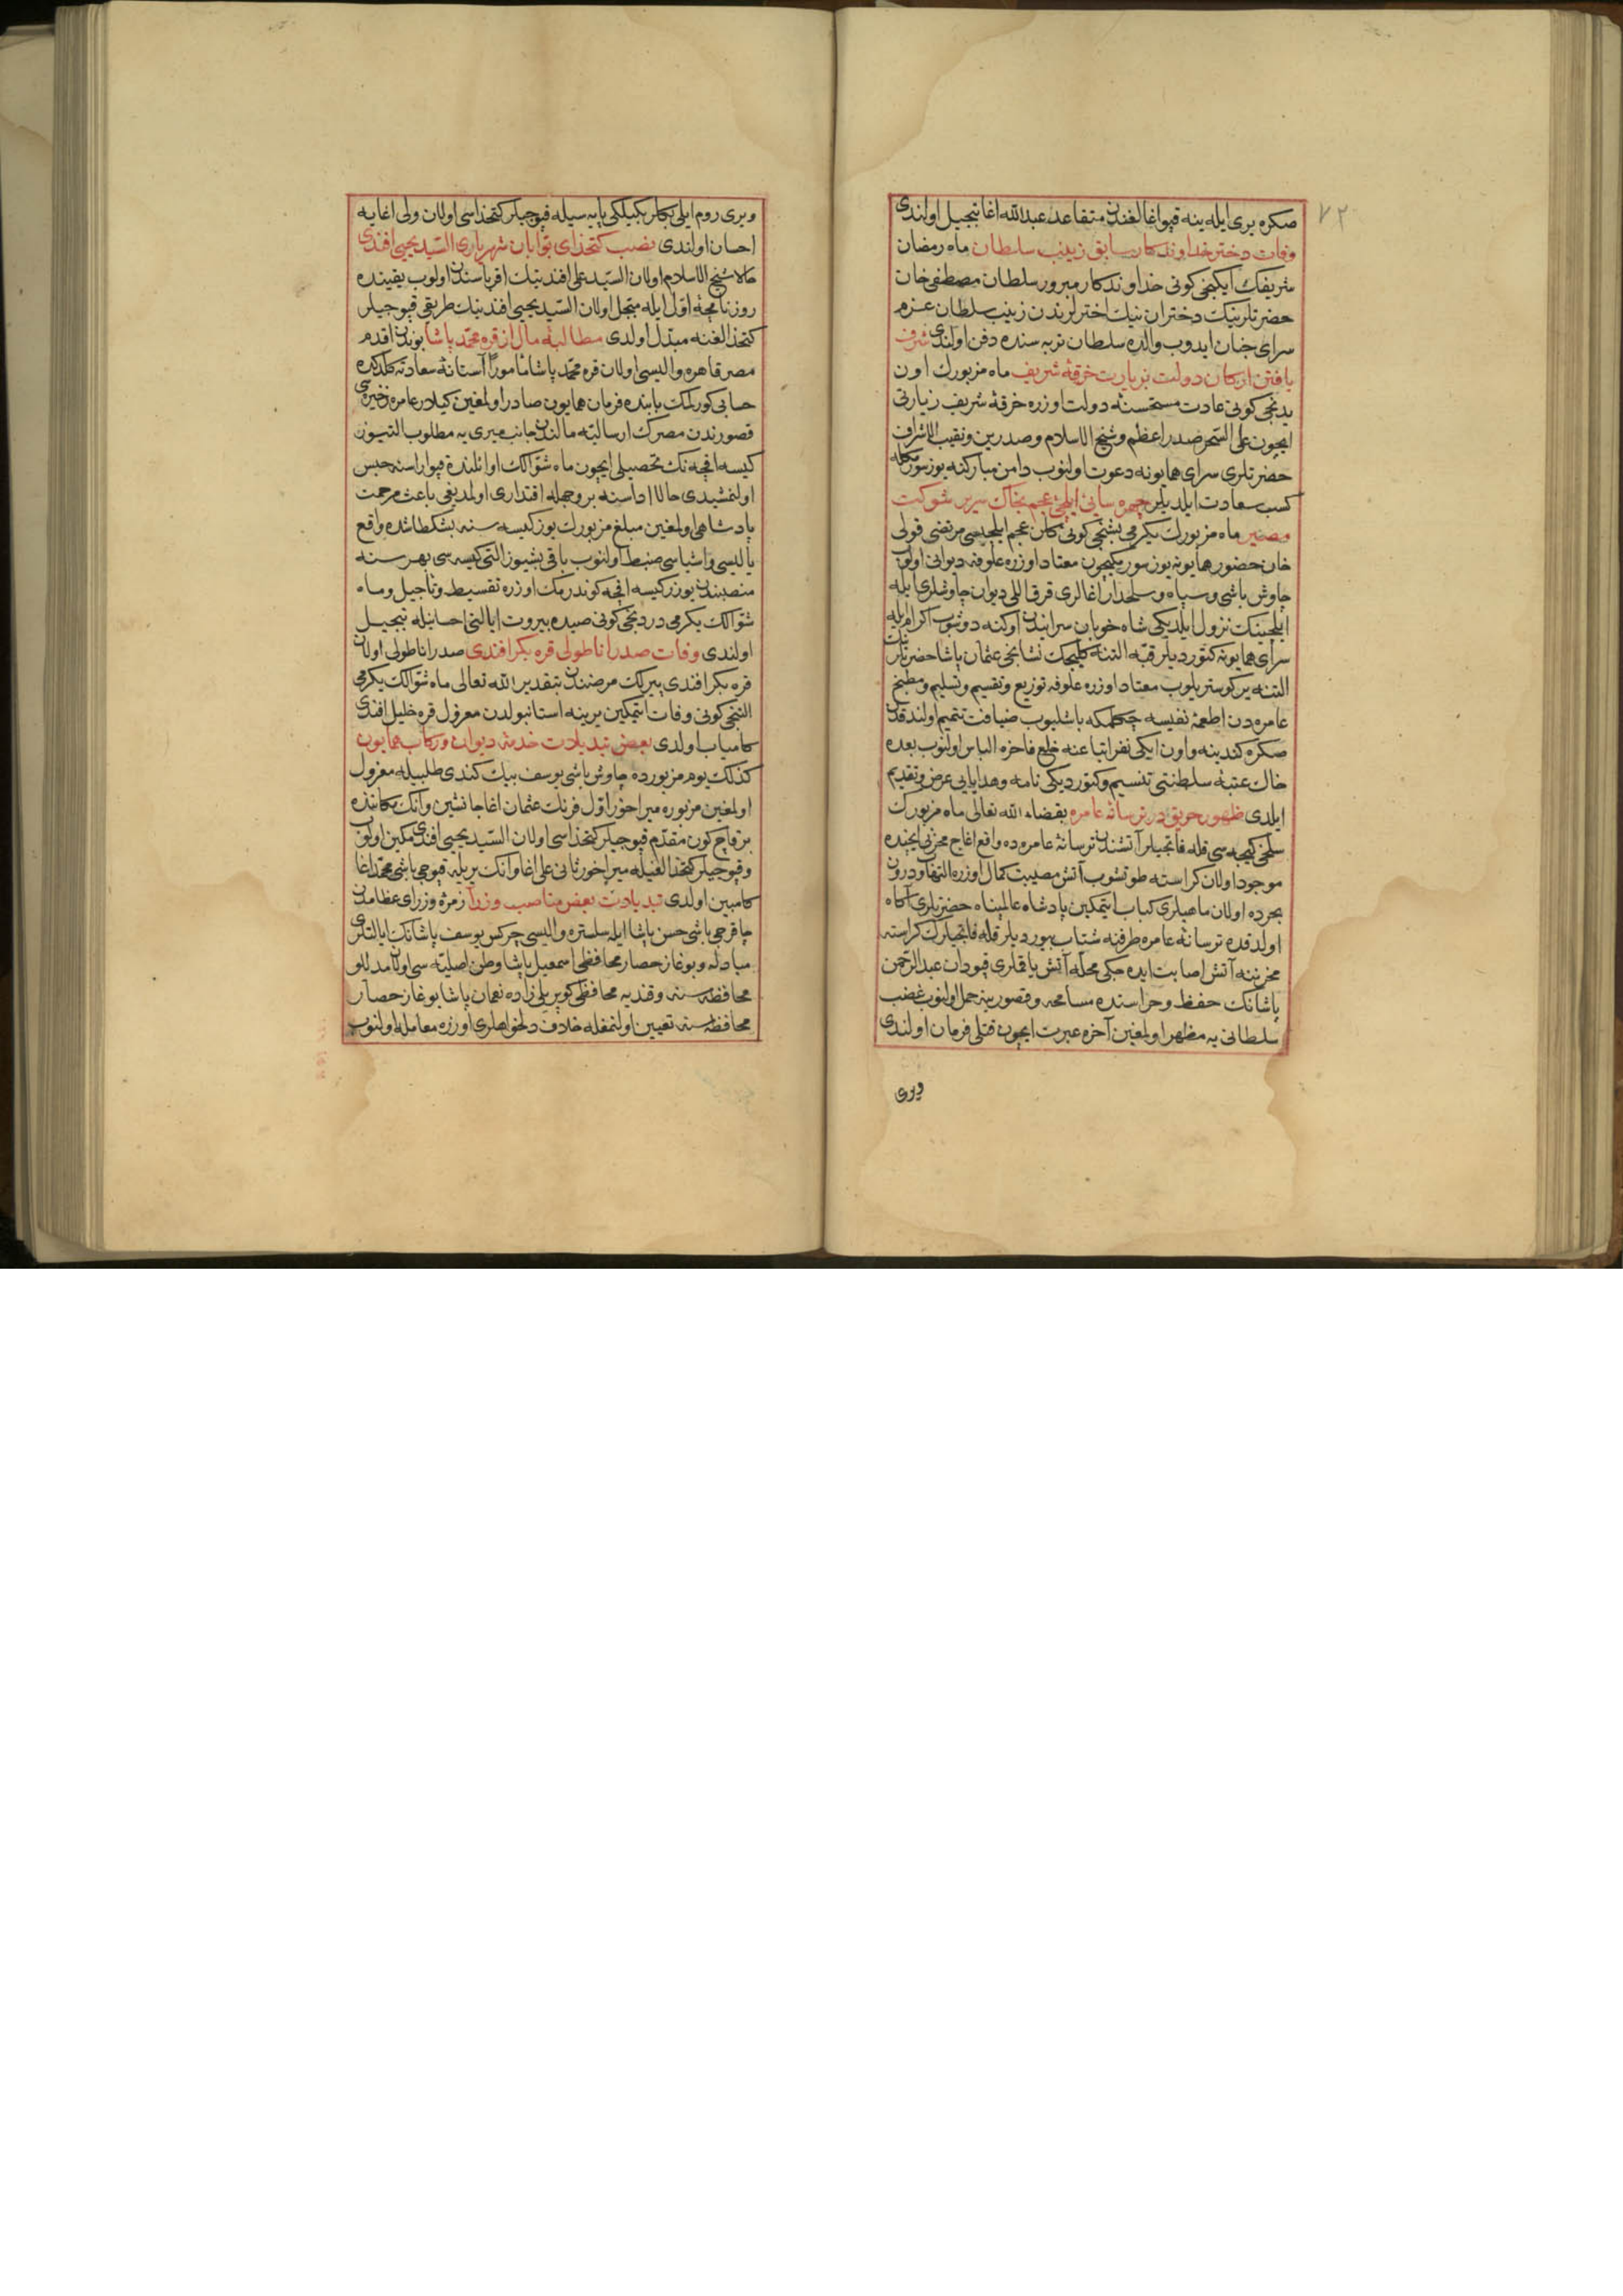 ٧٢
صكره بری ایله ینه قپو اغالغندن متقاعد عبدالله اغا تبجیل اولندی
وفات دختر خداوندكار سابق زینب سلطان ماه رمضان
شریفك ایكنجی كونی خداوندكار مبرور سلطان مصطفی خان
حضرتلرینك دختران نیك اخترلرندن زینب سلطان عزم
سرای جنان ایدوب والده سلطان تربه سنده دفن اولندی شرف
یافتن اركان دولت بزیارت خرقۀ شریف ماه مزبورك اون
یدنجی كونی عادت مستحسنۀ دولت اوزره خرقۀ شریف زیارتی
ایچون علی السحر صدر اعظم و شیخ الاسلام و صدرین و نقیب الاشراف
حضرتلری سرای همایونه دعوت اولنوب دامن مباركنه یوز سورمكله
كسب سعادت ایلدیلر چهره سایی ایلچئ عجم بخاك سریر شوكت
مصیر ماه مزبورك یكرمی بشنجی كونی كلن عجم ایلچیسی مرتضی قولی
خان حضور همایونه یوز سورمكیچون معتاد اوزره علوفه دیوانی اولوب
چاوش باشی و سپاه و سلحدار اغالری قرق اللی دیوان چاوشلری ایله
ایلچینك نزول ایلدیكی شاه خوبان سرایندن اوكنه دوشوب اكرام ایله
سرای همایونه كتوردیلر قبه التنه كلیجك نشانجی عثمان پاشا حضرتلرینك
التنه یر كوستریلوب معتاد اوزره علوفه توزیع و تقسیم و تسلیم و مطبخ
عامره دن اطعمۀ نفیسه چكلمكه باشلیوب ضیافت تتمیم اولندقدن
صكره كندینه و اون ایكی نفر اتباعنه خلع فاخره الباس اولنوب بعده
خاك عتبۀ سلطنتی تنسیم و كتوردیكی نامه و هدایایی عرض و تقدیم
ایلدی ظهور حریق در ترسانۀ عامره بقضاء الله تعالی ماه مزبورك
سلخی كیجه سی قلفاتجیلر آتشندن ترسانۀ عامره ده واقع اغاج مخزنی ایچنده
موجود اولان كراسته طوتشوب آتش مصیبت كمال اوزره التهاب و درون
بحرده اولان ماهیلری كباب ایتمكین پادشاه عالمپناه حضرتلری آكاه
اولدقده ترسانۀ عامره طرفنه شتاب بیوردیلر قلفاتجیلرك كراسته
مخزننه آتش اصابت ایده جكی محله آتش یاقملری قپودان عبدالرحمن
پاشانك حفظ و حراستده مسامحه و قصورینه حمل اولنوب غضب
سلطانی یه مظهر اولمغین آخره عبرت ایچون قتلی فرمان اولندی
ویری
ویری روم ایلی بكلربكیلكی پایه سیله قپوجیلر كتخداسی اولان ولی اغایه
احسان اولندی نصب كتخدای بوابان شهریاری السید یحیی افندی
حالا شیخ الاسلام اولان السید علی افندینك اقرباسندن اولوب یقینده
روزنامچۀ اول ایله مبجل اولان السید یحیی افندینك طریقی قپوجیلر
كتخدالغنه مبدل اولدی مطالبۀ مال از قره محمد پاشا بوندن اقدم
مصر قاهره والیسی اولان قره محمد پاشا مأمورًا آستانۀ سعادته كلدكده
حسابی كورلمك بابنده فرمان همایون صادر اولمغین كیلار عامره ذخیره سی
قصورندن مصرك ارسالیه مالندن جانب میری یه مطلوب التیوز
كیسه اقچه نك تحصیلی ایچون ماه شوالك اوائلنده قپو اراسنه حبس
اولنمشیدی حالا اداسنه بر وجهله اقتداری اولمدیغی باعث مرحمت
پادشاهی اولمغین مبلغ مزبورك یوز كیسه سنه بشكطاشده واقع
یالیسی و اشیاسی ضبط اولنوب باقی بشیوز التی كیسه سی بهر سنه
منصبندن یوزر كیسه اقچه كوندرمك اوزره تقسیط و تأجیل و ماه
شوالك یكرمی دردنجی كونی صیدا بیروت ایالتی احسانیله تبجیل
اولندی وفات صدر اناطولی قره بكر افندی صدر اناطولی اولان
قره بكر افندی پیرلك مرضندن بتقدیر الله تعالی ماه شوالك یكرمی
التنجی كونی وفات ایتمكین یرینه استانبولدن معزول قره خلیل افندی
كامیاب اولدی بعض تبدیلات خدمۀ دیوان و ركاب همایون
كذلك یوم مزبورده چاوش باشی یوسف بیك كندی طلبیله معزول
اولمغین مزبوره میراخور اول قرنات عثمان اغا جانشین و انك مكاننه
بر قاچ كون مقدم قپوجیلر كتخداسی اولان السید یحیی افندی مكین اولوب
و قپوجیلر كتخدالغیله میراخور ثانی علی اغا و انك یریله قپوجی باشی محمد اغا
كامبین اولدی تبدیلات بعض مناصب وزرا زمرۀ وزرای عظامدن
چاقرجی باشی حسن پاشا ایله سلستره والیسی چركس یوسف پاشانك ایالتلری
مبادله و بوغاز حصار محافظی اسمعیل پاشا وطن اصلیه سی اولان مدللو
محافظه سنه و قندیه محافظی كوپریلی زاده نعمان پاشا بوغاز حصار
محافظه سنه تعیین اولنمغله خلاف دلخواهلری اوزره معامله اولنوب